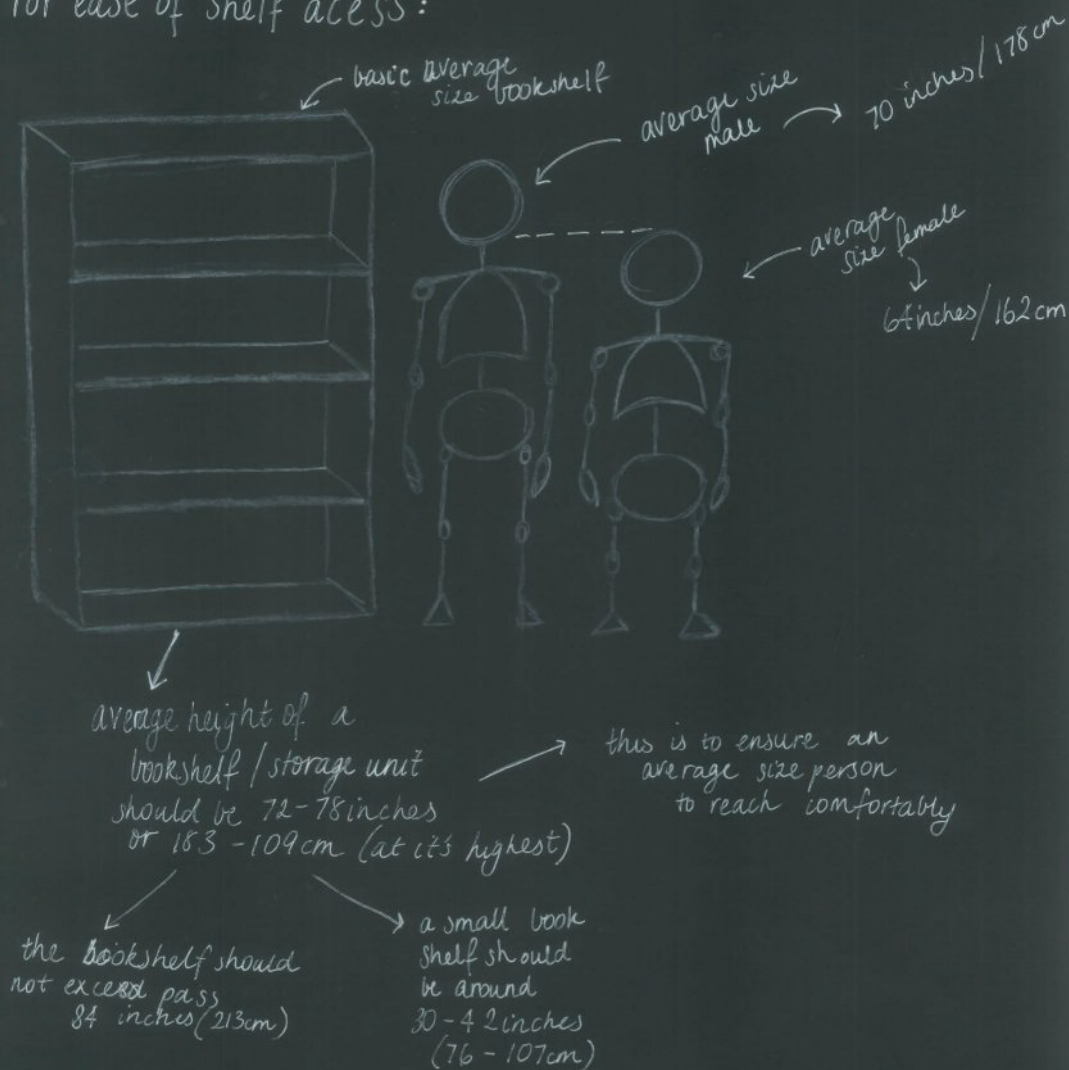 for ease of shelf acess:
basic average
size bookshelf
average size
male
70 inches/178cm
average
size female
64inches/162cm
average height of a
bookshelf/storage unit
should be 72-78inches
or 183-109cm (at it's highest)
this is to ensure an
average size person
to reach comfortably
the bookshelf should
not exceed pass
84 inches(213cm)
a small book
shelf should
be around
30-42inches
(76-107cm)